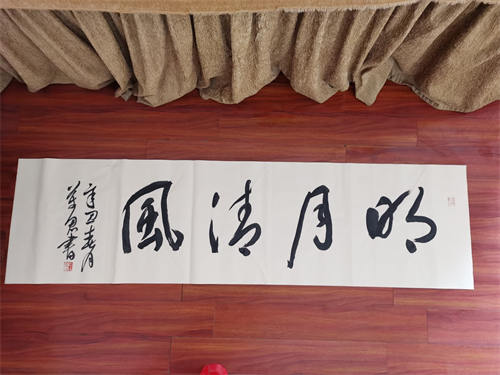 明月清風
辛丑春月
書